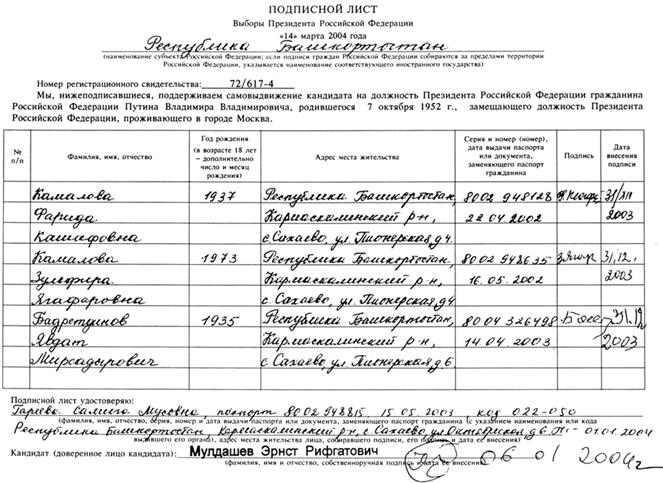 ПОДПИСНОЙ ЛИСТ
Выборы Президента Российской Федерации
«14» марта 2004 года
Республика Башкортостан
(наименование субъекта Российской Федерации; если подписи граждан Российской Федерации собираются за пределами территории
Российской Федерации, указывается наименование соответствующего иностранного государства)
Номер регистрационного свидетельства: 72/617-4
Мы, нижеподписавшиеся, поддерживаем самовыдвижение кандидата на должность Президента Российской Федерации гражданина
Российской Федерации Путина Владимира Владимировича, родившегося 7 октября 1952 г., замещающего должность Президента
Российской Федерации, проживающего в городе Москва.
№ п/п Фамилия, имя, отчество Год рождения (в возрасте 18 лет – дополнительно число и месяц рождения) Адрес места жительства Серия и номер (номер), дата выдачи паспорта или документа, заменяющего паспорт гражданина Подпись Дата внесения подписи
Камалова 1937 Республика Башкортостан, 8002 948128 31/XII
Фарида Кармаскалинский р-н, 22 04 2002 2003
Кашифовна с. Сахаево, ул. Пионерская д 4.
Камалова 1973 Республика Башкортостан, 8002 948635 31.12.
Зульфира Кармаскалинский р-н, 16. 05. 2002 2003
Ягафаровна с. Сахаево, ул. Пионерская, д 4
Бадретдинов 1935 Республика Башкортостан, 8004 326498 31.12
Явдат Кармаскалинский р-н, 14 04. 2003. 2003
Мирсадырович с. Сахаево, ул. Пионерская д 6.
Подписной лист удостоверяю:
Гареева Салига Мусовна, паспорт 8002 948815, 15. 05. 2003, код 022-050
(фамилия, имя, отчество, серия, номер и дата выдачи паспорта или документа, заменяющего паспорт гражданина (с указанием наименования или кода
Республика Башкортостан, Кармаскалинский р-н, с. Сахаево, ул. Октябрьская д 6. 01.01.2004
выдавшего его органа), адрес места жительства лица, собиравшего подписи, его подпись и дата ее внесения)
Кандидат (доверенное лицо кандидата): Мулдашев Эрнст Рифгатович 06 01 2004г
(фамилия, имя и отчество, собственноручная подпись и дата ее внесения)